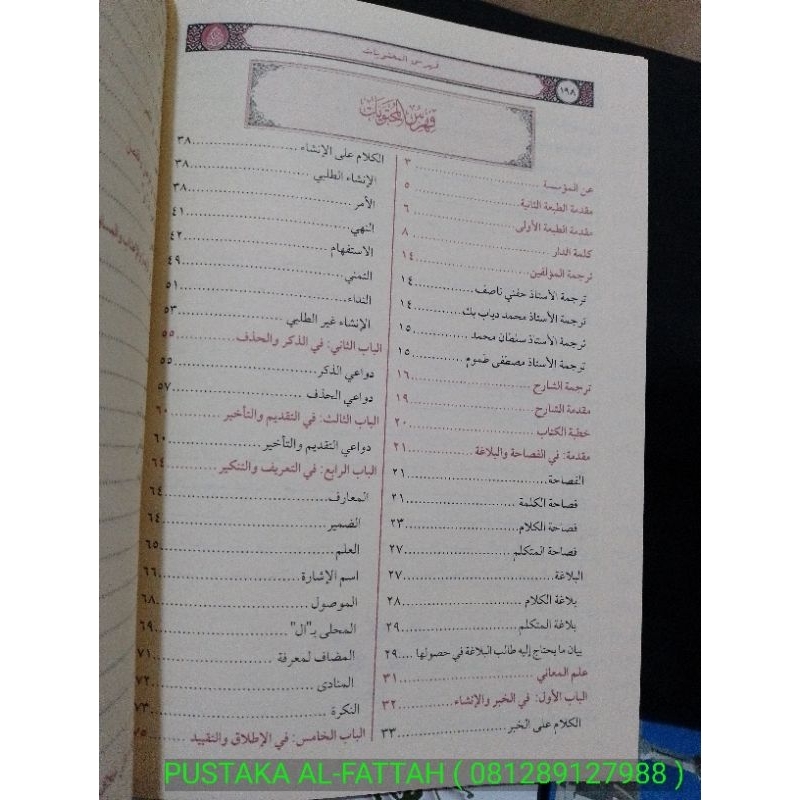 فهرس المحتويات
١٩٨
فهرس المحتويات
عن المؤسسة ................ ٣
مقدمة الطبعة الثانية ................ ٥
مقدمة الطبعة الأولى ................ ٦
كلمة الدار ................ ٨
ترجمة المؤلفين ................ ١٤
ترجمة الأستاذ حفني ناصف ................ ١٤
ترجمة الأستاذ محمد دياب بك ................ ١٤
ترجمة الأستاذ سلطان محمد ................ ١٥
ترجمة الأستاذ مصطفى طموم ................ ١٥
ترجمة الشارح ................ ١٦
مقدمة الشارح ................ ١٩
خطبة الكتاب ................ ٢٠
مقدمة: في الفصاحة والبلاغة ................ ٢١
الفصاحة ................ ٢١
فصاحة الكلمة ................ ٢١
فصاحة الكلام ................ ٢٣
فصاحة المتكلم ................ ٢٧
البلاغة ................ ٢٧
بلاغة الكلام ................ ٢٨
بلاغة المتكلم ................ ٢٩
بيان ما يحتاج إليه طالب البلاغة في حصولها .... ٢٩
علم المعاني ................ ٣١
الباب الأول: في الخبر والإنشاء ................ ٣٢
الكلام على الخبر ................ ٣٣
الكلام على الإنشاء ................ ٣٨
الإنشاء الطلبي ................ ٣٨
الأمر ................ ٣٨
النهي ................ ٤١
الاستفهام ................ ٤٢
التمني ................ ٤٩
النداء ................ ٥١
الإنشاء غير الطلبي ................ ٥٣
الباب الثاني: في الذكر والحذف ................ ٥٥
دواعي الذكر ................ ٥٥
دواعي الحذف ................ ٥٧
الباب الثالث: في التقديم والتأخير ................ ٦٠
دواعي التقديم والتأخير ................ ٦٠
الباب الرابع: في التعريف والتنكير ................ ٦٤
المعارف ................ ٦٤
الضمير ................ ٦٤
العلم ................ ٦٥
اسم الإشارة ................ ٦٦
الموصول ................ ٦٨
المحلى بـ"ال" ................ ٦٩
المضاف لمعرفة ................ ٧١
المنادى ................ ٧٢
النكرة ................ ٧٣
الباب الخامس: في الإطلاق والتقييد ................ ٧٥
PUSTAKA AL-FATTAH ( 081289127988 )